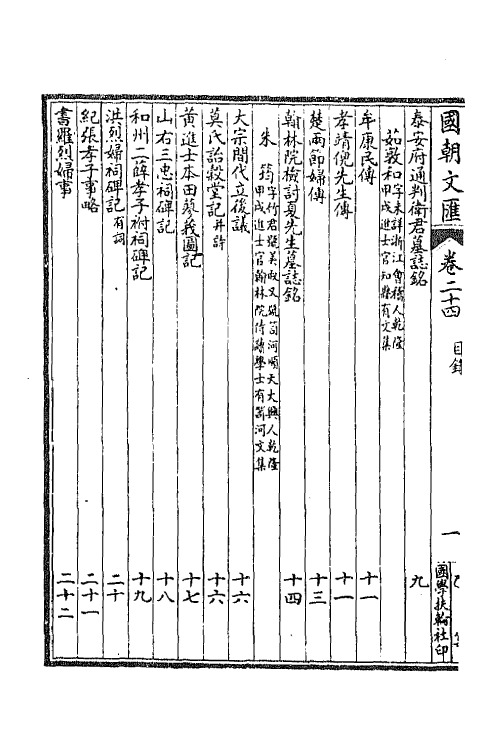 國朝文匯 卷二十四 目錄 一 國學扶輪社印
泰安府通判衛君墓誌銘 九
茹敦和 字未詳浙江會稽人乾隆甲戌進士官知縣有文集
牟康民傳 十一
孝靖倪先生傳 十一
楚兩節婦傳 十三
翰林院檢討夏先生墓誌銘 十四
朱筠 字竹君號美叔又號笥河順天大興人乾隆甲戌進士官翰林院侍讀學士有笥河文集
大宗閒代立後議 十六
莫氏詒穀堂記 并詩 十六
黃進士本田蓼莪圖記 十七
山右三忠祠碑記 十八
和州二薛孝子祔祠碑記 十九
洪烈婦祠碑記 有詞 二十
紀張孝子事略 二十一
書羅烈婦事 二十二